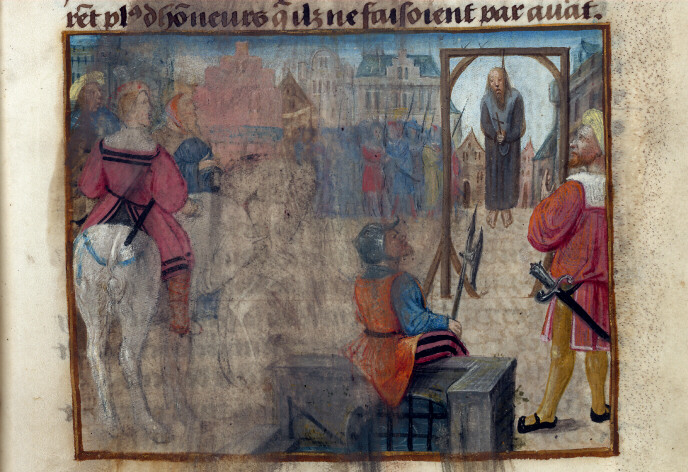 rẽt plꝰ dhõneurs q̃ ilz ne faisoient par auãt.